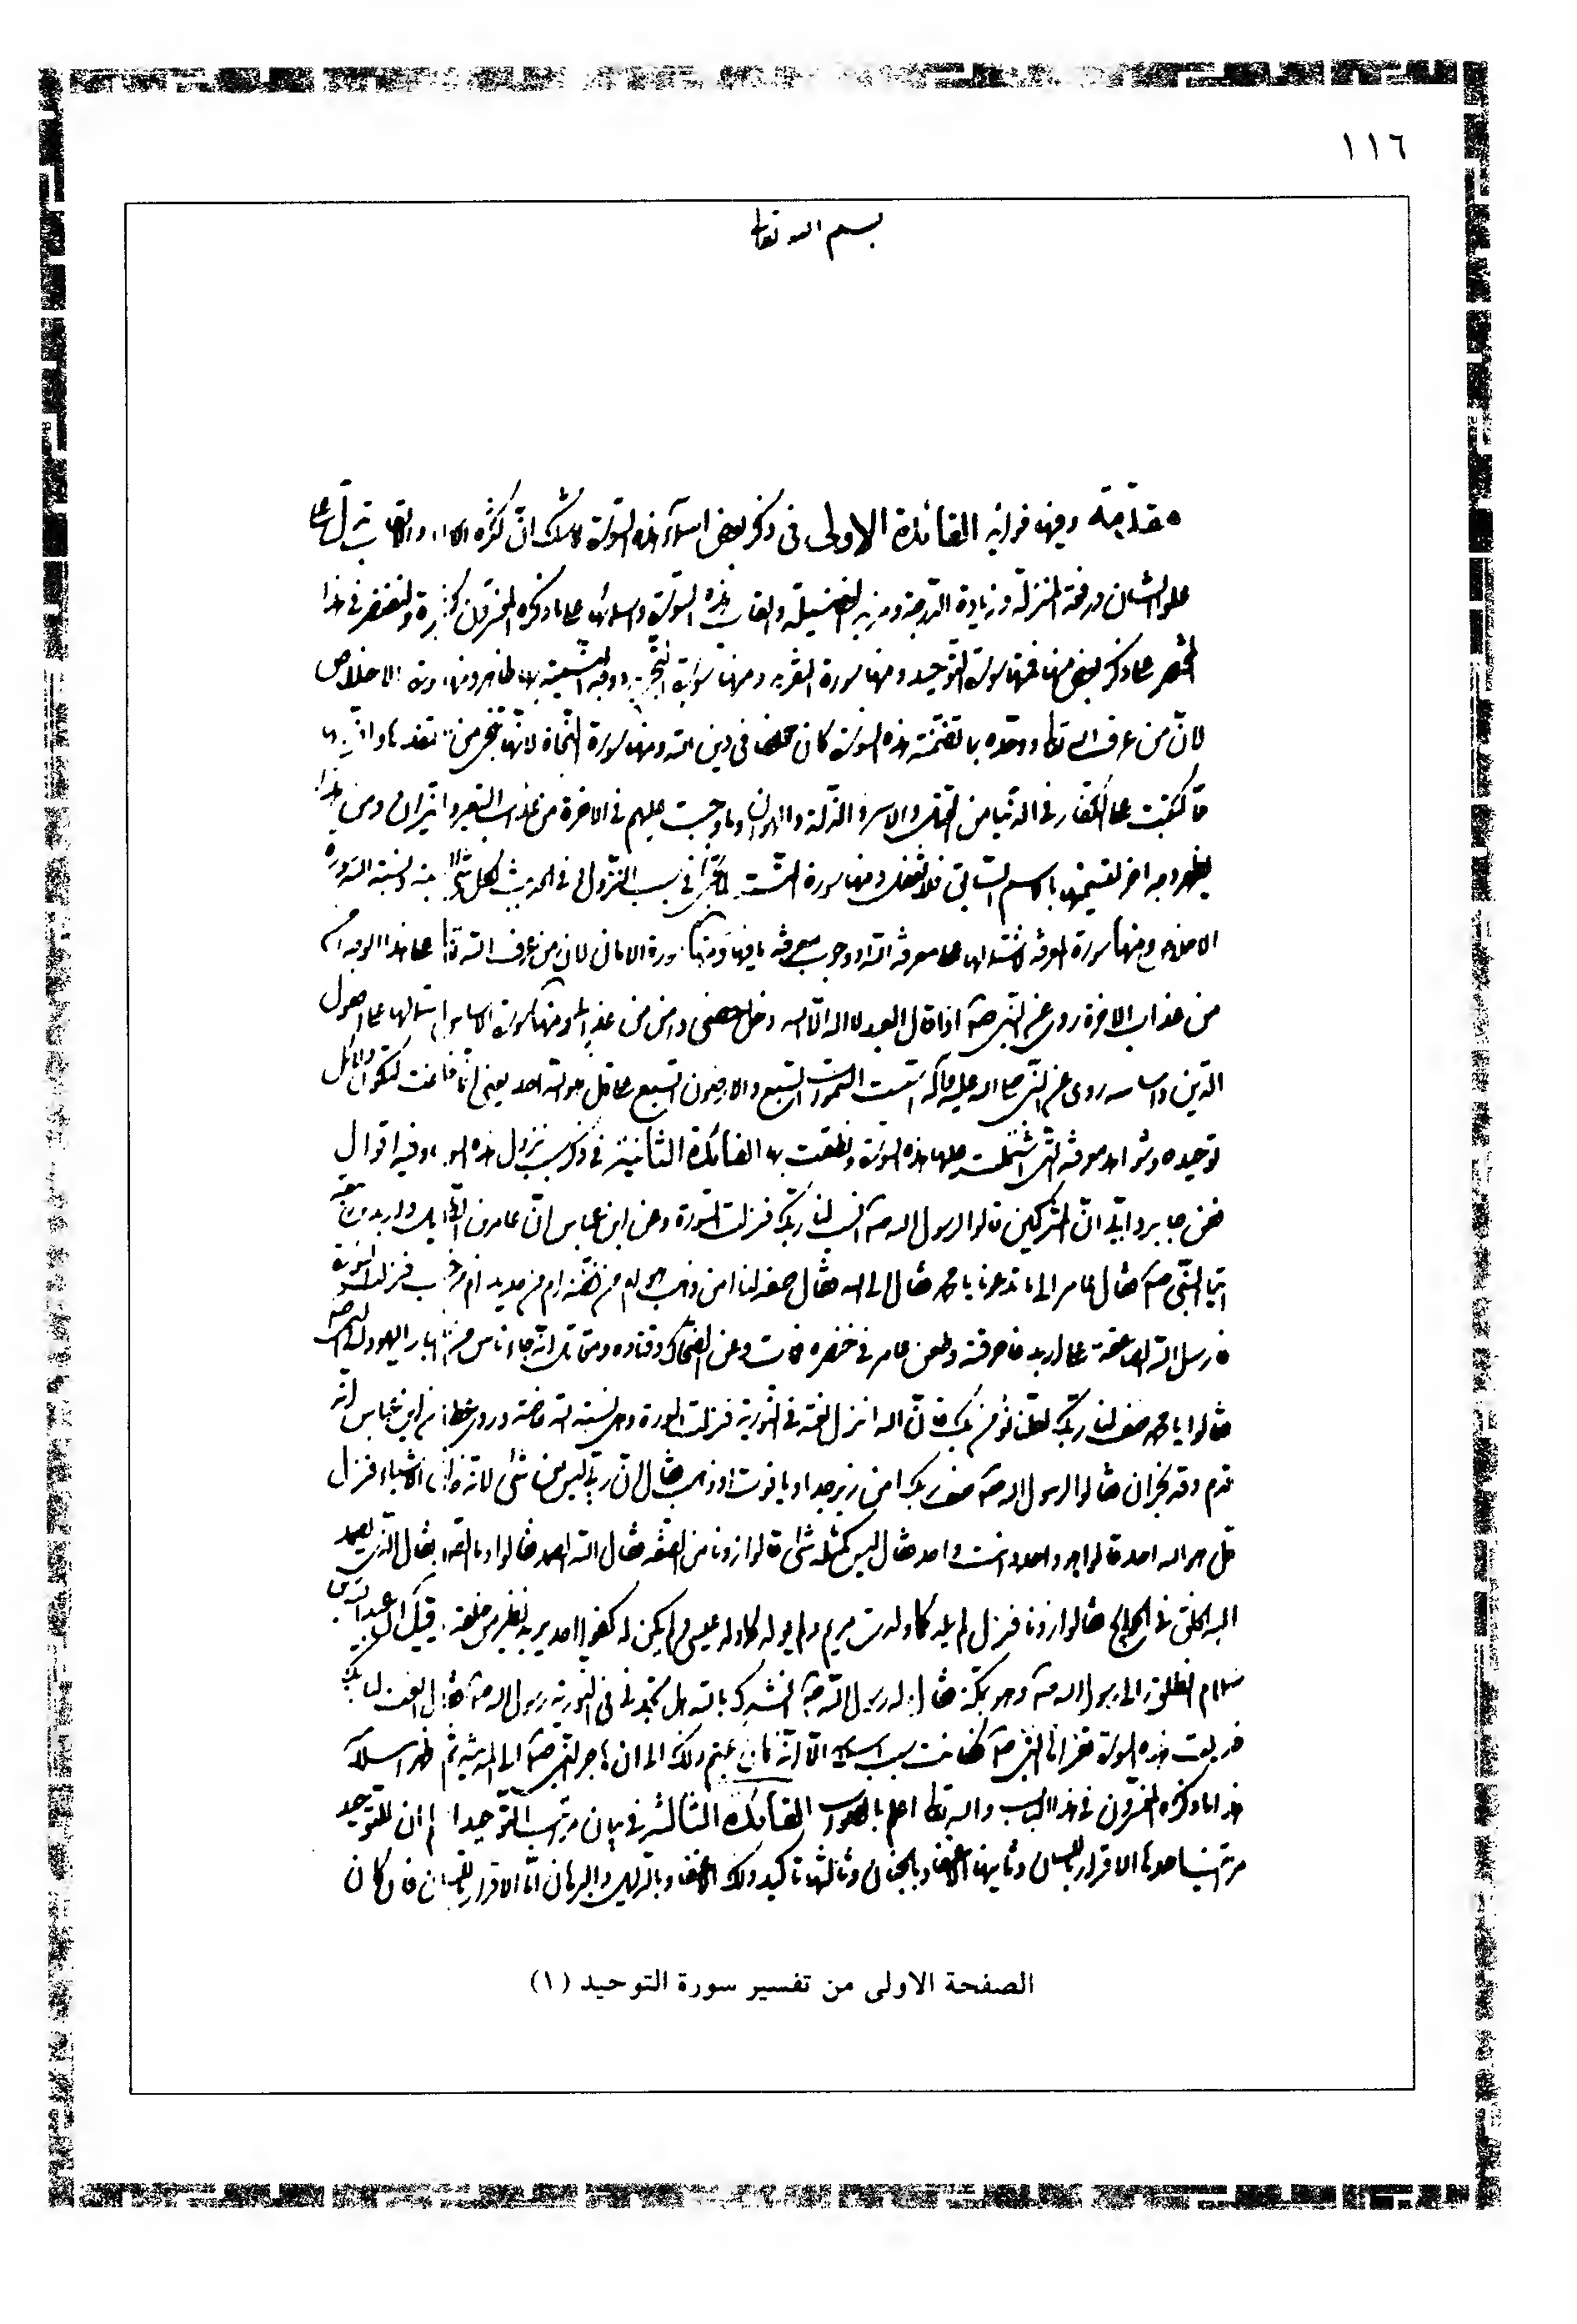 ١١٦
بسم الله تعا
مقدمة وفيها فوائد الفائدة الاولى فى ذكر بعض اسماء هذه السورة لا شك ان كثرة والالقاب تدل على
علو الشان ورفعة المنزلة وزيادة الدرجة ومزيد الفضيلة والقاب هذه السورة واسمائها على ما ذكره المفسرون كثيرة ولنقتصر فى هذا
المختصر على ذكر بعض منها فمنها سورة التوحيد ومنها سورة التفريد ومنها سورة التجريد ووجه التسمية بها ظاهر ومنها سورة الاخلاص
لان من عرف الله تعا ووحده بما تضمنته هذه السورة كان مخلصا فى دين الله ومنها سورة النجاة لانها تنجى من
كتبت على الكفار فى الدنيا من القتل والاسر والذلة والهوان وما وجبت عليهم فى الاخرة من عذاب السعير والنيران ومن هذا
يظهر وجه اخر لتسميتها بالاسم السابق فلا تغفل ومنها سورة النسبة فى سبب النزول فى الحديث لكل شئ نسبة ونسبة الله سورة
الاخلاص ومنها سورة المعرفة لاشتمالها على معرفة الله ووجوب معرفة ما فيها ومنها سورة الامان لان من عرف الله تعا على هذا الوجه امن
من عذاب الاخرة روى عن النبى ص اذا قال العبد لا اله الا الله دخل حصنى وامن من عذابى ومنها سورة الاساس لاشتمالها على اصول
الدين واساسه روى عن النبى صلى الله عليه وآله اسست السموات السبع والارضون السبع على قل هو الله احد يعنى انها ما خلقت لتكون دلائل
توحيده وشواهد معرفة التى اشتملت عليها هذه السورة ونطقت بها الفائدة الثانية فى ذكر سبب نزول هذه السورة وفيه اقوال
فعن جابر وابى ان المشركين قالوا لرسول الله ص انسب لنا ربك فنزلت السورة وعن ابن عباس ان عامر بن الطفيل واربد بن ربيعة
اتيا النبى ص فقال عامر الى ما تدعونا يا محمد فقال الى الله فقال صفه لنا امن ذهب هو ام من فضة ام من حديد ام من خشب فنزلت السورة
فارسل الله الصاعقة على اربد فاحرقته وطعن عامر فى خنصره فمات وعن الضحاك وقتاده ومقاتل انه جاء ناس من احبار اليهود الى النبى ص
فقالوا يا محمد صف لنا ربك لعلنا نؤمن بك فان الله انزل نعته فى التورية فنزلت السورة وهى نسبة الله خاصة وروى عطاء عن ابن عباس انه
قدم وفد نجران فقالوا لرسول الله ص صف ربك امن زبرجد او ياقوت او ذهب فقال ان ربى ليس من شئ لانه خالق الاشياء فنزل
قل هو الله احد قالوا هو واحد وانت واحد فقال ليس كمثله شئ قالوا زدنا من الصفة فقال الله الصمد فقالوا وما الصمد فقال الذى يصمد
اليه الخلق فى الحوايج فقالوا زدنا فنزل لم يلد كما ولدت مريم ولم يولد كما ولد عيسى ولم يكن له كفوا احد يريد نظير من خلقه وقيل ان عبد الله بن
سلام انطلق الى رسول الله ص وهو بمكة فقال له رسول الله ص انشدك بالله هل تجدنى فى التورية رسول الله ص فقال انعت لنا ربك
فنزلت هذه السورة فقرأها النبى ص فكانت سبب اسلامه الا انه كان يكتم ذلك الى ان هاجر النبى ص الى المدينة ثم ظهر اسلامه
هذا ما ذكره المفسرون فى هذا الباب والله تعا اعلم بالصواب الفائدة الثالثة فى بيان مراتب التوحيد اعلم ان للتوحيد
مراتب احدها الاقرار باللسان وثانيها الاعتقاد بالجنان وثالثها تاكيد ذلك الاعتقاد بالدليل والبرهان اما الاقرار باللسان فان كان
الصفحة الاولى من تفسير سورة التوحيد (١)